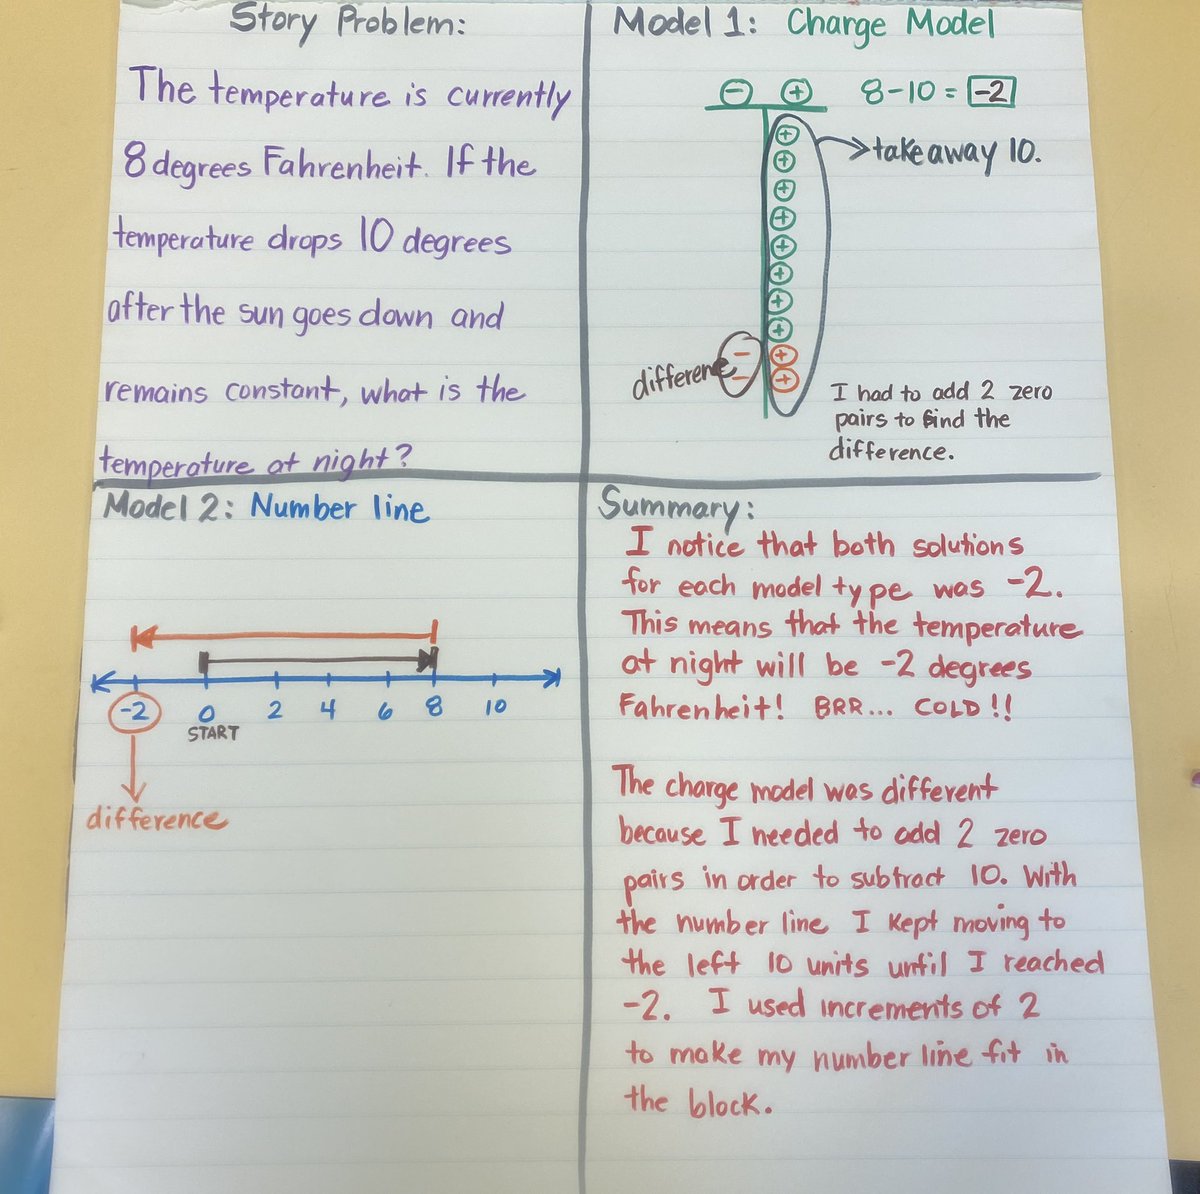 Story Problem:
The temperature is currently
8 degrees Fahrenheit. If the
temperature drops 10 degrees
after the sun goes down and
remains constant, what is the
temperature at night?
Model 1: Charge Model
− + 8-10 = -2
+
+
+
+
+
+
+
+
− +
− +
take away 10.
difference
I had to add 2 zero
pairs to find the
difference.
Model 2: Number line
-2 0 2 4 6 8 10
START
difference
Summary:
I notice that both solutions
for each model type was -2.
This means that the temperature
at night will be -2 degrees
Fahrenheit! BRR... COLD!!
The charge model was different
because I needed to add 2 zero
pairs in order to subtract 10. With
the number line I kept moving to
the left 10 units until I reached
-2. I used increments of 2
to make my number line fit in
the block.